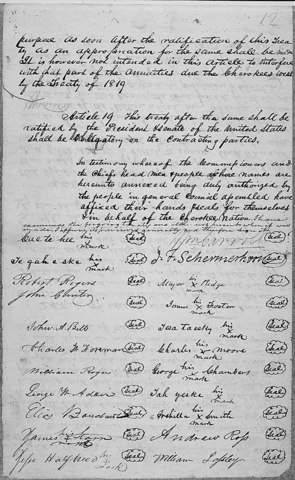 12
purpose as soon after the ratification of this Trea
ty as an appropriation for the same shall be made
It is however not intended in this Article to interfere
with that part of the Annuities due the Cherokees west
by the Treaty of 1819
Article 19. This treaty after the same shall be
ratified by the President & Senate of the United States
shall be Obligatory on the Contracting parties.
In testimony whereof the Commissioners and
the Chiefs head men & people whose names are
hereunto annexed being duly authorized by
the people in general Council assembled have
affixed their hands & seals for themselves
& in behalf of the Cherokee Nation.
Wm Carroll Seal
Cae te hee his x mark Seal J. F. Schermerhorn Seal
Te gah e ske his x mark Seal
Robert Rogers Seal Major his x mark Ridge Seal
John Gunter Seal James his x mark Foster Seal
John A. Bell Seal Tesa ta esky his x mark Seal
Charles F. Foreman Seal Charles his x mark Moore Seal
William Rogers Seal George his x mark Chambers Seal
George W. Adair Seal Tah yeske his x mark Seal
Elias Boudinot Seal Archilla his x mark Smith Seal
James his x mark Starr Seal Andrew Ross Seal
Jesse Halfbreed his x mark Seal William Lassley Seal